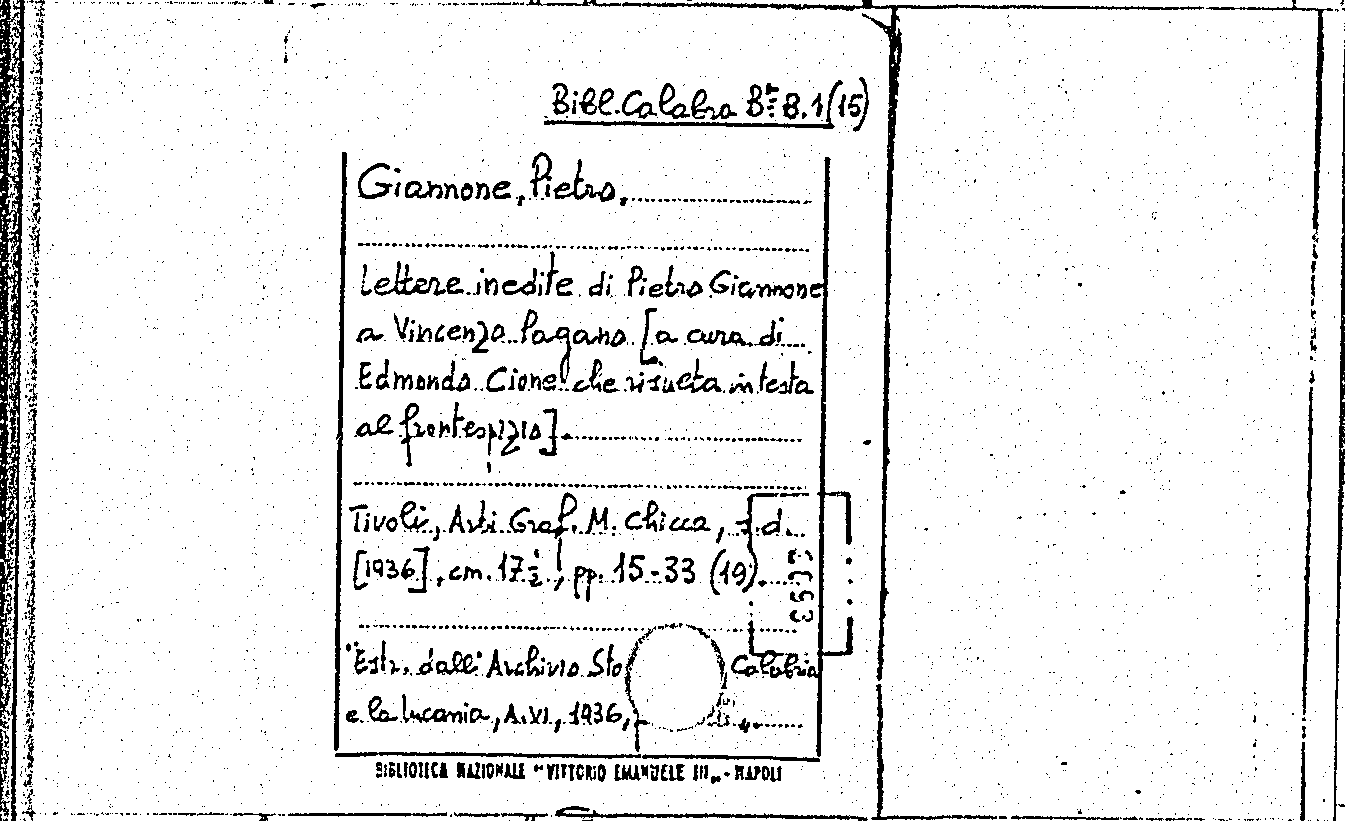 Bibl. Calabra Bta B.1(15)
Giannone, Pietro.
Lettere inedite di Pietro Giannone
a Vincenzo Pagano [a cura di
Edmondo Cione che risulta in testa
al frontespizio].
Tivoli, Arti Graf. M. Chicca, s.d.
[1936], cm. 17½, pp. 15-33 (19).
"Estr. dall'Archivio Sto Calabria
e la Lucania, A. VI, 1936,
BIBLIOTECA NAZIONALE "VITTORIO EMANUELE III" - NAPOLI